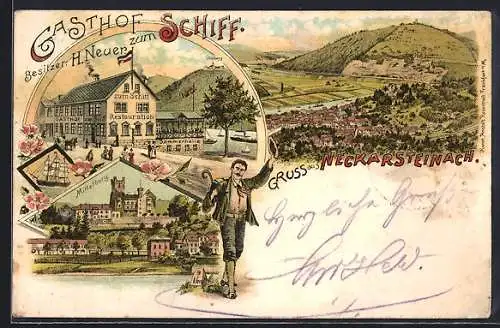 GASTHOF zum SCHIFF.
Besitzer: H. Neuer
zum Schiff
Restauration
Mittelburg
GRUSS aus NECKARSTEINACH.
Herzliche Grüße